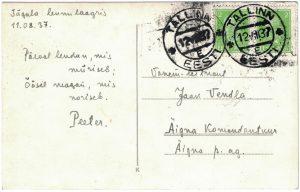 Jägala laagris
11.08.37.
Päeval lendan, mis
müriseb;
Öösel magan, mis
noriseb.
Peeter.
TALLINN
12 VIII 37
EESTI
TALLINN
12 VIII 37
EESTI
Jaan Vendla
Äigna Komandantuur
Äigna p. ag.
K